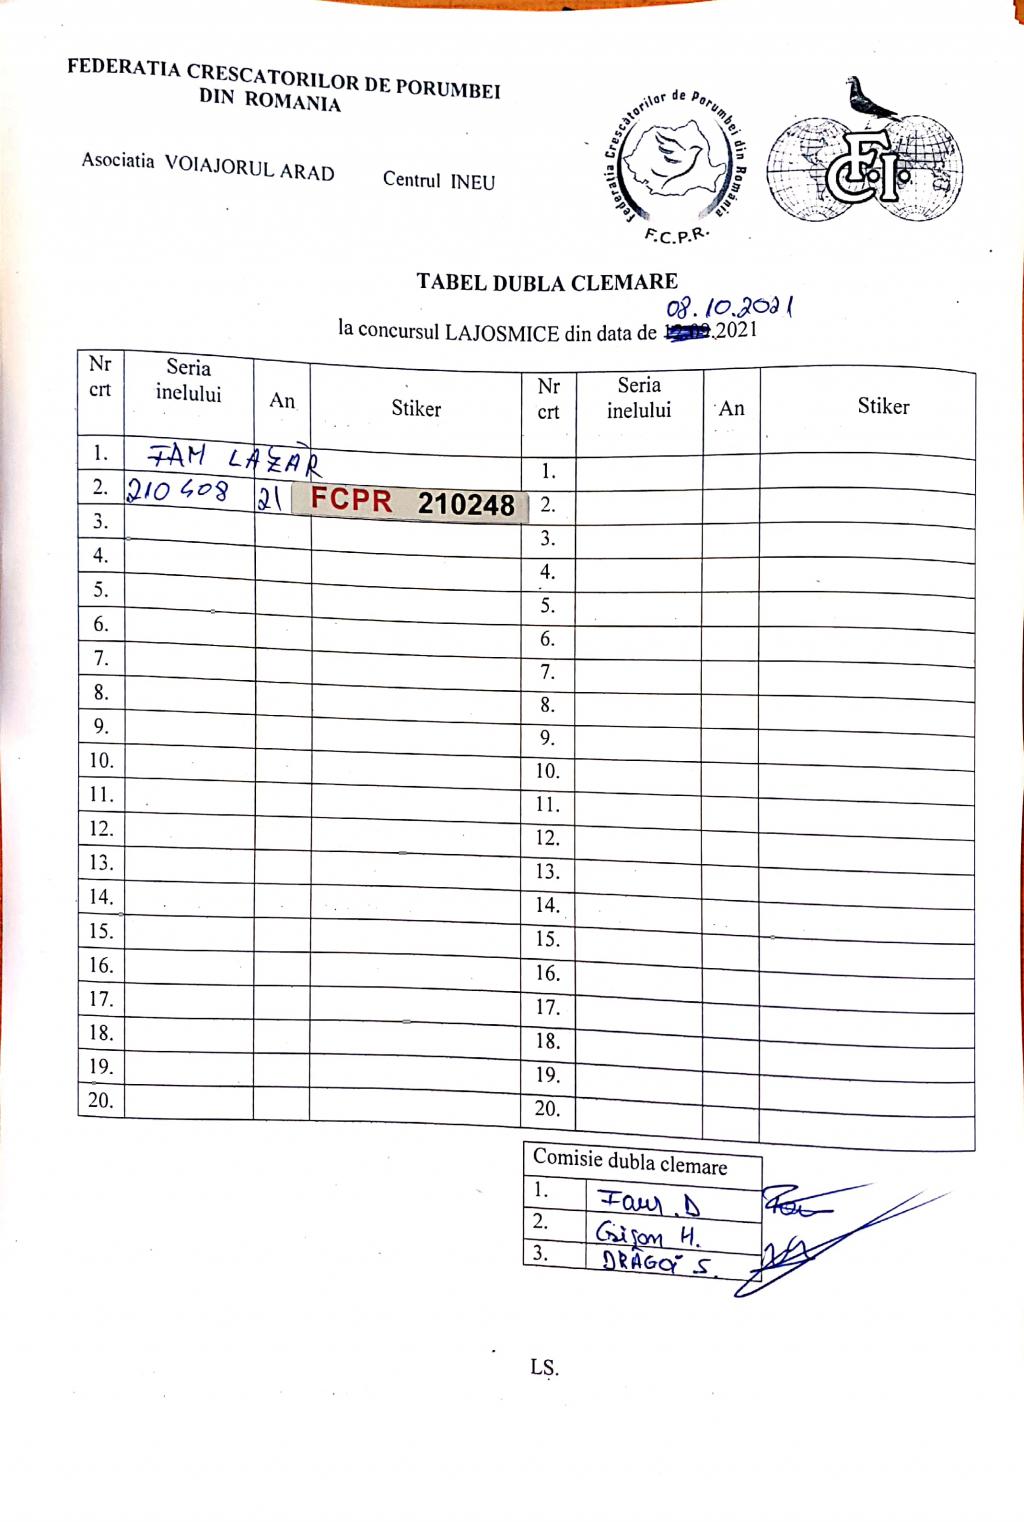 FEDERATIA CRESCATORILOR DE PORUMBEI
DIN ROMANIA
Asociatia VOIAJORUL ARAD Centrul INEU
Federatia Crescătorilor de Porumbei din România
F.C.P.R.
F.C.I.
TABEL DUBLA CLEMARE
08.10.2021
la concursul LAJOSMICE din data de .2021
Nr crt Seria inelului An Stiker Nr crt Seria inelului An Stiker
1. FAM LAZĂR 1.
2. 210408 21 FCPR 210248 2.
3. 3.
4. 4.
5. 5.
6. 6.
7. 7.
8. 8.
9. 9.
10. 10.
11. 11.
12. 12.
13. 13.
14. 14.
15. 15.
16. 16.
17. 17.
18. 18.
19. 19.
20. 20.
Comisie dubla clemare
1. Faur D
2. H.
3. S.
LS.